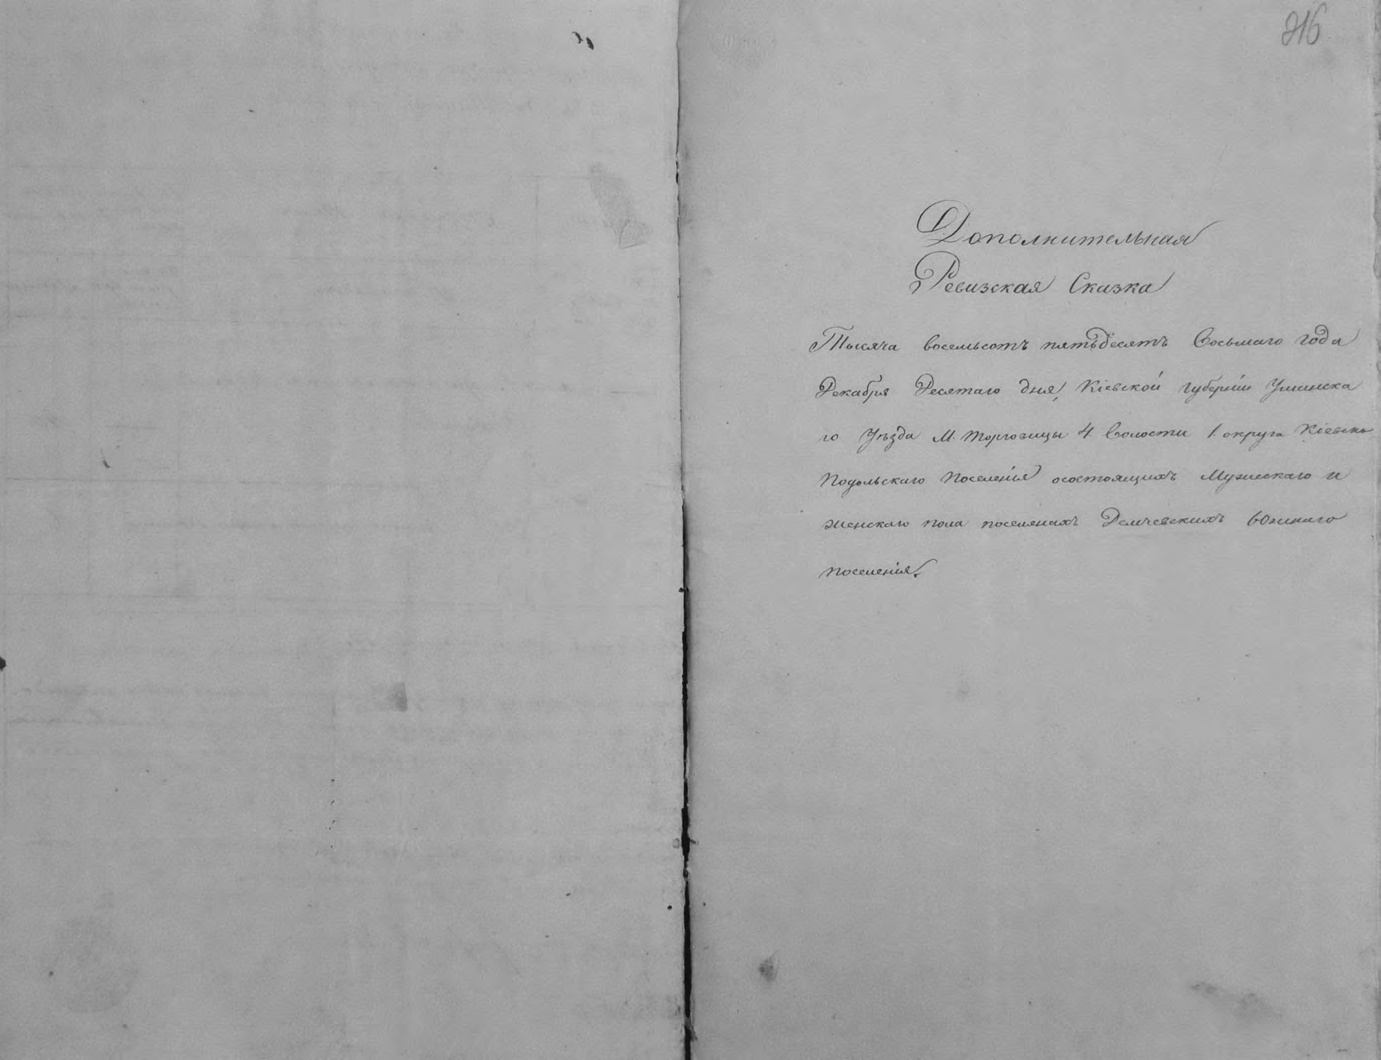 216
Дополнительная
Ревизская Сказка
Тысяча восемьсотъ пятьдесятъ Восьмаго года
Декабря Десятаго дня, Кіевской губерніи Уманска
го Уѣзда М. Торговицы 4 Волости 1 округа Кіевско
Подольскаго Поселенія осостоящихъ Мужескаго и
женскаго пола поселянахъ
поселенія.